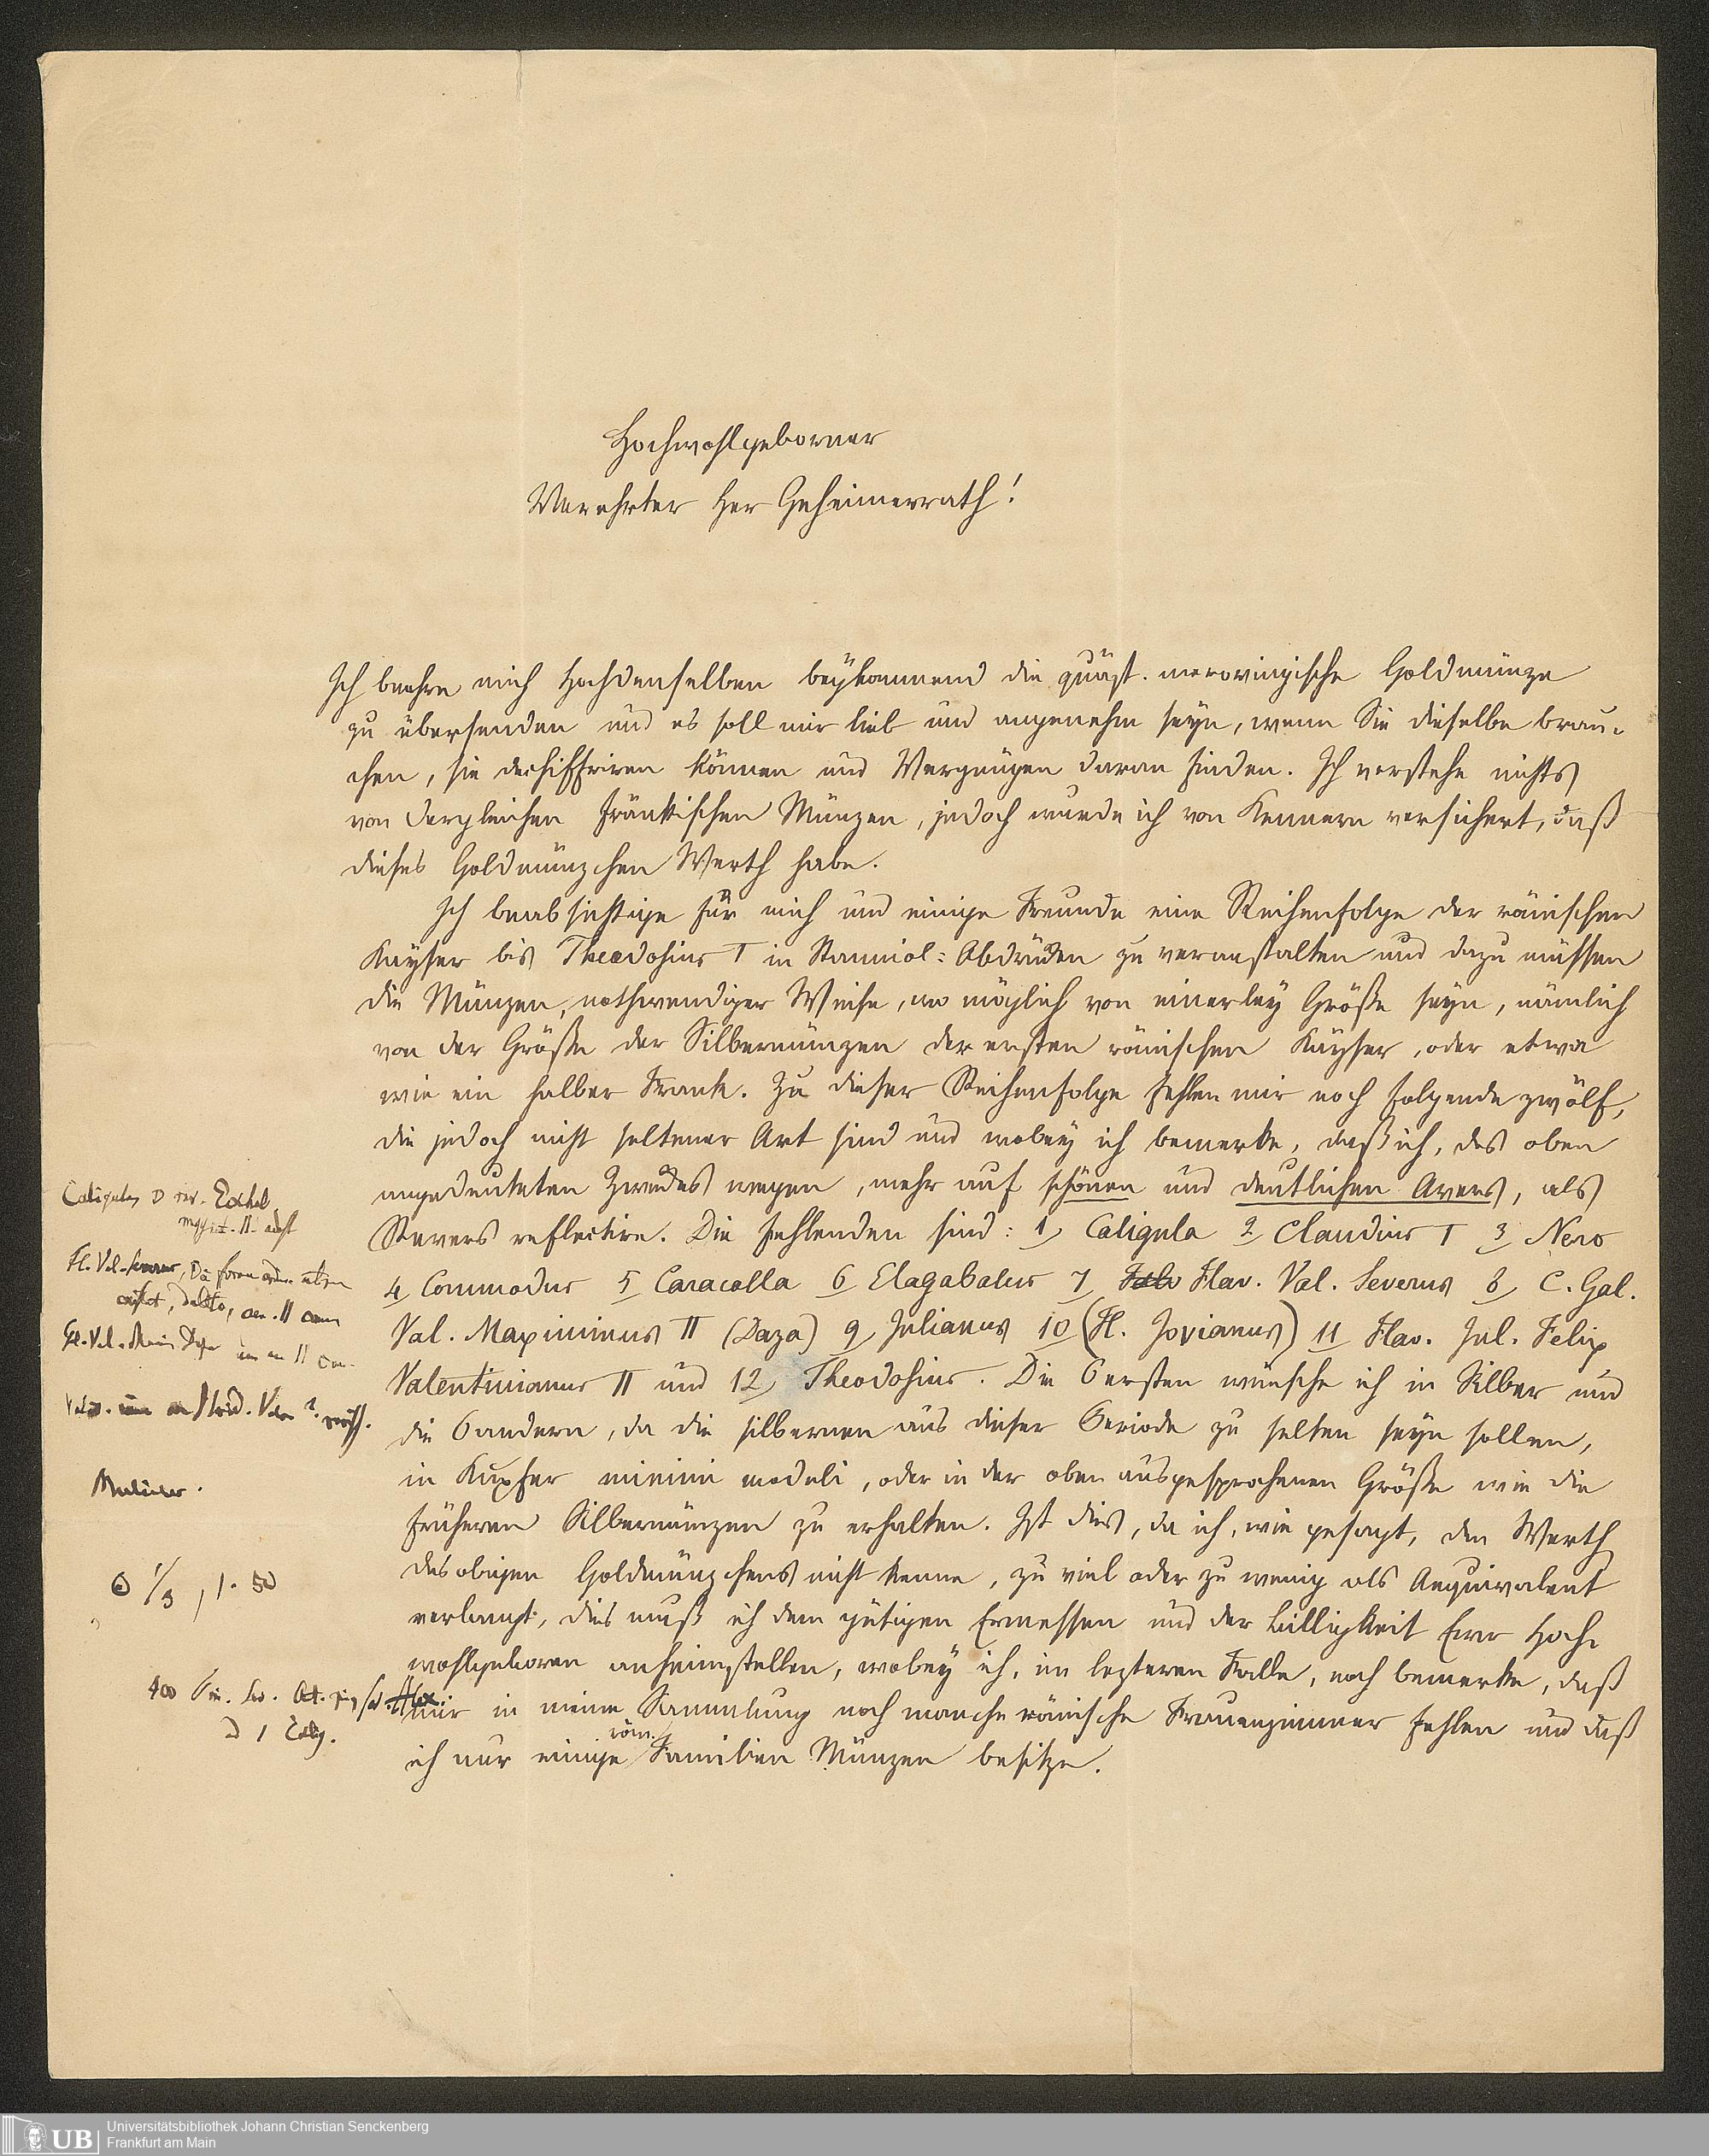 Hochwohlgeborner
Verehrter Her Geheimerrath!
Ich beehre mich Hochdenselben beykommend die quäst. merovingische Goldmünze
zu übersenden und es soll mir lieb und angenehm seyn, wenn Sie dieselbe brau-
chen, sie dechiffriren können und Vergnügen daran finden. Ich verstehe nichts
von dergleichen fränkischen Münzen, jedoch wurde ich von Kennern versichert, daß
dieses Goldmünzchen Werth habe.
Ich beabsichtige für mich und einige Freunde eine Reihenfolge der römischen
Kayser bis Theodosius I in Stanniol-Abdrücken zu veranstalten und dazu müssen
die Münzen, nothwendiger Weise, wo möglich von einerley Größe seyn, nämlich
von der Größe der Silbermünzen der ersten römischen Kayser, oder etwa
wie ein halber Frank. Zu dieser Reihenfolge fehlen mir noch folgende zwölf,
die jedoch nicht seltener Art sind und wobey ich bemerke, daß ich, des oben
angedeuteten Zweckes wegen, mehr auf schönen und deutlichen Avers, als
Revers reflectire. Die fehlenden sind: 1, Caligula 2 Claudius I 3, Nero
4, Commodus 5 Caracalla 6 Elagabalus 7, Flav. Val. Severus 8, C. Gal.
Val. Maximinus II (Daza) 9, Julianus 10 (Fl. Jovianus) 11 Flav. Jul. Felix
Valentinianus II und 12, Theodosius. Die 6 ersten wünsche ich in Silber und
die 6 andern, da die silbernen aus dieser Periode zu selten seyn sollen,
in Kupfer minimi moduli, oder in der oben ausgesprochenen Größe wie die
früheren Silbermünzen zu erhalten. Ist dies, da ich, wie gesagt, den Werth
des obigen Goldmünzchens nicht kenne, zu viel oder zu wenig als Aequivalent
verlangt, dies muß ich dem gütigen Ermessen und der Billigkeit Euer Hoch-
wohlgeboren anheimstellen, wobey ich, im lezteren Falle, noch bemerke, daß
mir in meine Sammlung noch manche römische Frauenzimmer fehlen und daß
ich nur einige röm. Familien Münzen besitze.
Caligula D rev.
Fl. Val. Severus,
Fl. Val.
1/3, 1. 50
400